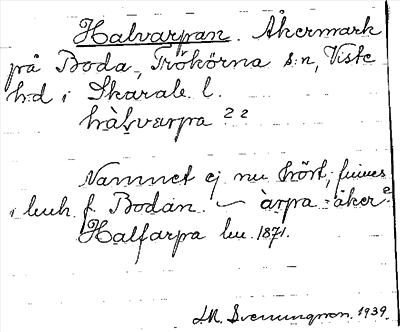 Halvarpan. Åkermark
på Boda, Trökörna s:n, Viste
h:d i Skarab. l.
hàlvarpa 2 2
Namnet ej nu hört, finnes
i luh. f. Bodan. — àrpa -åker2
Halfarpa lu. 1871.
Svenungsson. 1939.